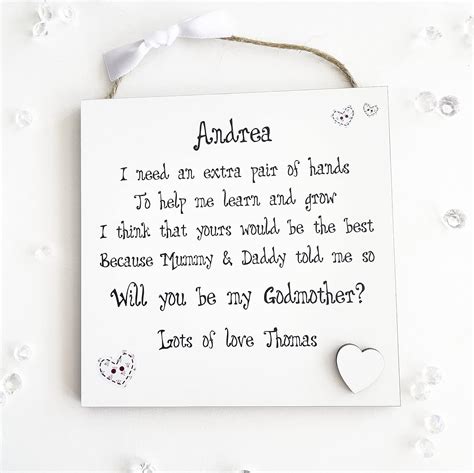 Andrea
I need an extra pair of hands
To help me learn and grow
I think that yours would be the best
Because Mummy & Daddy told me so
Will you be my Godmother?
Lots of love Thomas